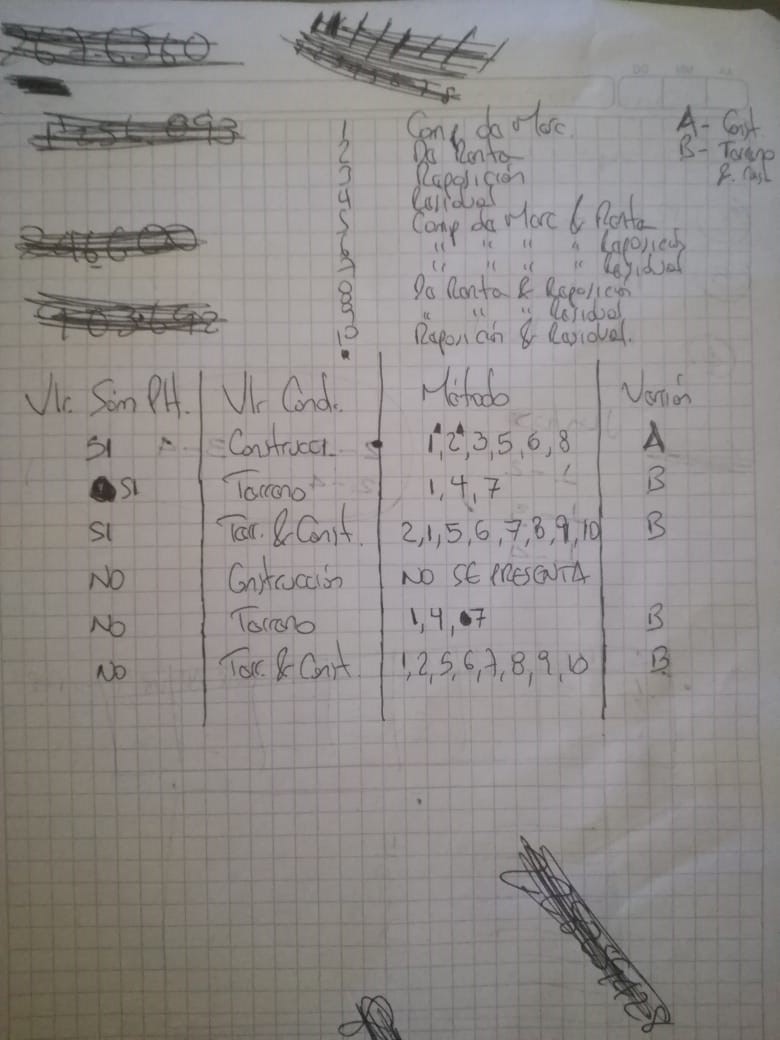 AA MM DD
1 Comp de Merc. A- Const.
2 De Renta B- Terreno
3 Reposición & Const
4 Residual
5 Comp de Merc & Renta
6 " " " " Reposición
7 " " " " Residual
8 De Renta & Reposición
9 " " " Residual
10 Reposición & Residual.
Vlr. Sóm PH. Vlr Cond. Método Versión
SI Construcci. 1, 2, 3, 5, 6, 8 A
SI Terreno 1, 4, 7 B
SI Terr. & Const. 2, 1, 5, 6, 7, 8, 9, 10 B
NO Construcción NO SE PRESENTA
NO Terreno 1, 4, 7 B
NO Terr. & Const. 1, 2, 5, 6, 7, 8, 9, 10 B.